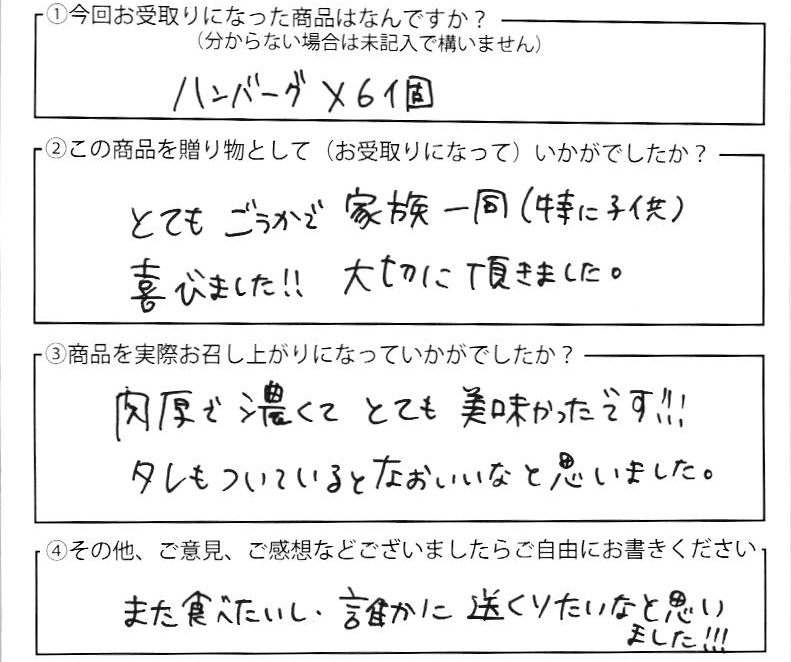 ①今回お受取りになった商品はなんですか？
（分からない場合は未記入で構いません）
ハンバーグ×6個
②この商品を贈り物として（お受取りになって）いかがでしたか？
とても ごうかで 家族一同(特に子供)
喜びました!! 大切に頂きました。
③商品を実際お召し上がりになっていかがでしたか？
肉厚で濃くて とても 美味かったです!!!
タレもついているとなおいいなと思いました。
④その他、ご意見、ご感想などございましたらご自由にお書きください
また食べたいし・誰かに 送くりたいなと思い
ました!!!